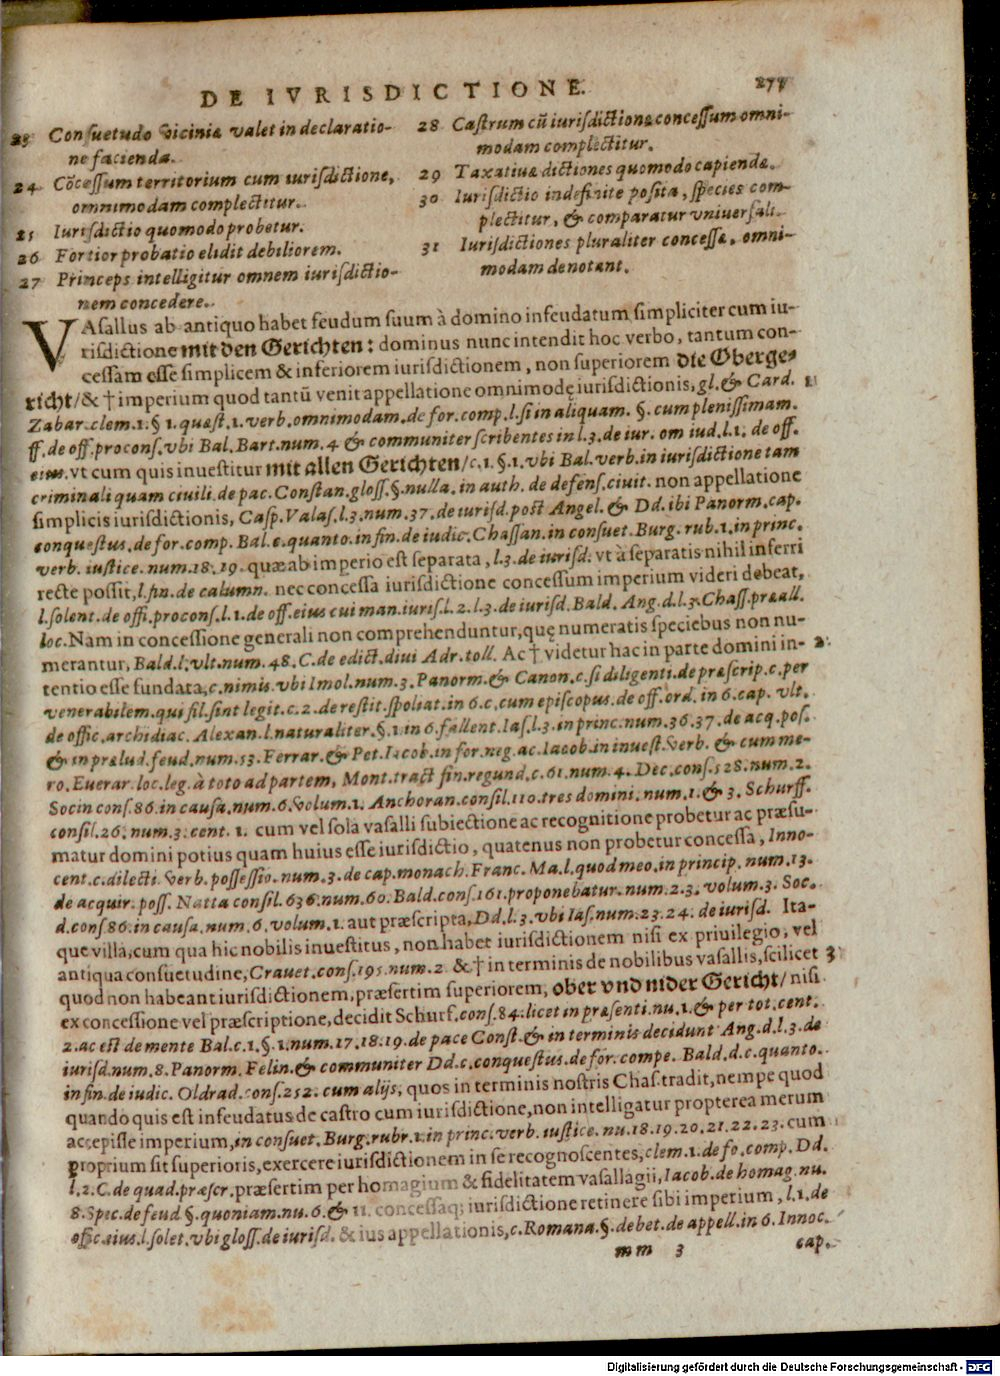 DE IVRISDICTIONE. 277
23 Consuetudo viciniæ valet in declaratio-
ne facienda.
24 Cōcessum territorium cum iurisdictione,
omnimodam complectitur.
25 Iurisdictio quomodo probetur.
26 Fortior probatio elidit debiliorem.
27 Princeps intelligitur omnem iurisdictio-
nem concedere.
28 Castrum cū iurisdictione concessum omni-
modam complectitur.
29 Taxatiuæ dictiones quomodo capiendæ.
30 Iurisdictio indefinite posita, species com-
plectitur, & comparatur vniuersali.
31 Iurisdictiones pluraliter concessæ, omni-
modam denotant.
VAsallus ab antiquo habet feudum suum à domino infeudatum simpliciter cum iu-
risdictione mit den Gerichten: dominus nunc intendit hoc verbo, tantum con-
cessam esse simplicem & inferiorem iurisdictionem, non superiorem die Oberge-
richt/ & † imperium quod tantū venit appellatione omnimodę iurisdictionis, gl. & Card. 1
Zabar. clem. 1. § 1. quæst. 1. verb. omnimodam. de for. comp. l. si in aliquam. §. cum plenissimam.
ff. de off. procons. vbi Bal. Bart. num. 4 & communiter scribentes in l. 3. de iur. om iud. l. 1. de off.
eius. vt cum quis inuestitur mit allen Gerichten/ c. 1. §. 1. vbi Bal. verb. in iurisdictione tam
criminali quam ciuili. de pac. Constan. gloss. §. nulla. in auth. de defens. ciuit. non appellatione
simplicis iurisdictionis, Casp. Valas. l. 3. num. 37. de iurisd. post Angel. & Dd. ibi Panorm. cap.
conquestus. de for. comp. Bal. c. quanto. in fin. de iudic. Chassan. in consuet. Burg. rub. 1. in princ.
verb. iustice. num. 18. 19. quæ ab imperio est separata, l. 3. de iurisd. vt à separatis nihil inferri
recte possit, l. fin. de calumn. nec concessa iurisdictione concessum imperium videri debeat,
l. solent. de offi. procons. l. 1. de off. eius cui man. iuris. l. 2. l. 3. de iurisd. Bald. Ang. d. l. 3. Chass. præall.
loc. Nam in concessione generali non comprehenduntur, quę numeratis speciebus non nu-
merantur, Bald. l. vlt. num. 48. C. de edict. diui Adr. toll. Ac † videtur hac in parte domini in- 2
tentio esse fundata, c. nimis. vbi Imol. num. 3. Panorm. & Canon. c. si diligenti. de præscrip. c. per
venerabilem. qui fil. sint legit. c. 2. de restit. spoliat. in 6. c. cum episcopus. de off. ord. in 6. cap. vlt.
de offic. archidiac. Alexan. l. naturaliter. §. 1. in 6. fallent. Ias. l. 3. in princ. num. 36. 37. de acq. pos.
& in prælud. feud. num. 53. Ferrar. & Pet. Iacob. in for. neg. ac. Iacob. in inuest. verb. & cum me-
ro. Euerar. loc. leg. à toto ad partem, Mont. tract fin. regund. c. 61. num. 4. Dec. cons. 528. num. 2.
Socin cons. 86. in causa. num. 6. volum. 1. Anchoran. consil. 110. tres domini. num. 1. & 3. Schurff.
consil. 26. num. 3. cent. 1. cum vel sola vasalli subiectione ac recognitione probetur ac præsu-
matur domini potius quam huius esse iurisdictio, quatenus non probetur concessa, Inno-
cent. c. dilecti. verb. possessio. num. 3. de cap. monach. Franc. Ma. l. quod meo. in princip. num. 13.
de acquir. poss. Natta consil. 636. num. 60. Bald. cons. 161. proponebatur. num. 2. 3. volum. 3. Soc.
d. cons 86. in causa. num. 6. volum. 1. aut præscripta, Dd. l. 3. vbi Ias. num. 23. 24. de iurisd. Ita-
que villa, cum qua hic nobilis inuestitus, non habet iurisdictionem nisi ex priuilegio, vel
antiqua consuetudine, Crauet. cons. 195. num. 2. & † in terminis de nobilibus vasallis, scilicet 3
quod non habeant iurisdictionem, præsertim superiorem, ober vnd nider Gericht/ nisi
ex concessione vel præscriptione, decidit Schurf. cons. 84. licet in præsenti. nu. 1. & per tot. cent.
2. ac est de mente Bal. c. 1. §. 1. num. 17. 18. 19. de pace Const. & in terminis decidunt Ang. d. l. 3. de
iurisd. num. 8. Panorm. Felin. & communiter Dd. c. conquestus. de for. compe. Bald. d. c. quanto.
in fin. de iudic. Oldrad. cons. 252. cum alijs, quos in terminis nostris Chas. tradit, nempe quod
quando quis est infeudatus de castro cum iurisdictione, non intelligatur propterea merum
accepisse imperium, in consuet. Burg. rubr. 1. in princ. verb. iustice. nu. 18. 19. 20. 21. 22. 23. cum
proprium sit superioris, exercere iurisdictionem in se recognoscentes, clem. 1. de fo. comp. Dd.
l. 2. C. de quad. præscr. præsertim per homagium & fidelitatem vasallagii, Iacob. de homag. nu.
8. Spec. de feud §. quoniam. nu. 6. & 11. concessaq; iurisdictione retinere sibi imperium, l. 1. de
offic. eius. l. solet. vbi gloss. de iurisd. & ius appellationis, c. Romana. §. debet. de appell. in 6. Innoc.
mm 3 cap.
Digitalisierung gefördert durch die Deutsche Forschungsgemeinschaft - DFG